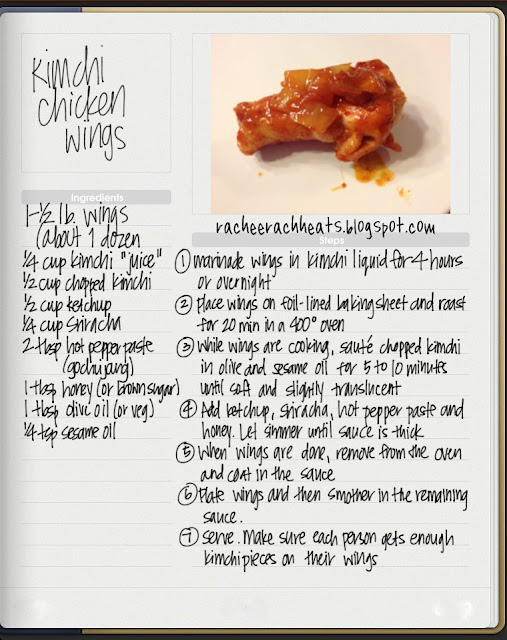 kimchi
chicken
wings
Ingredients
1-½ lb. wings
(about 1 dozen
¼ cup kimchi "juice"
½ cup chopped kimchi
½ cup ketchup
¼ cup sriracha
2 tbsp hot pepper paste
(gochujang)
1 tbsp honey (or brown sugar)
1 tbsp olive oil (or veg)
¼ tsp sesame oil
racheerachheats.blogspot.com
Steps
① marinade wings in kimchi liquid for 4 hours
or overnight
② place wings on foil-lined baking sheet and roast
for 20 min in a 400° oven
③ while wings are cooking, sauté chopped kimchi
in olive and sesame oil for 5 to 10 minutes
until soft and slightly translucent
④ Add ketchup, sriracha, hot pepper paste and
honey. Let simmer until sauce is thick
⑤ when wings are done, remove from the oven
and coat in the sauce
⑥ Plate wings and then smother in the remaining
sauce.
⑦ serve. Make sure each person gets enough
kimchi pieces on their wings